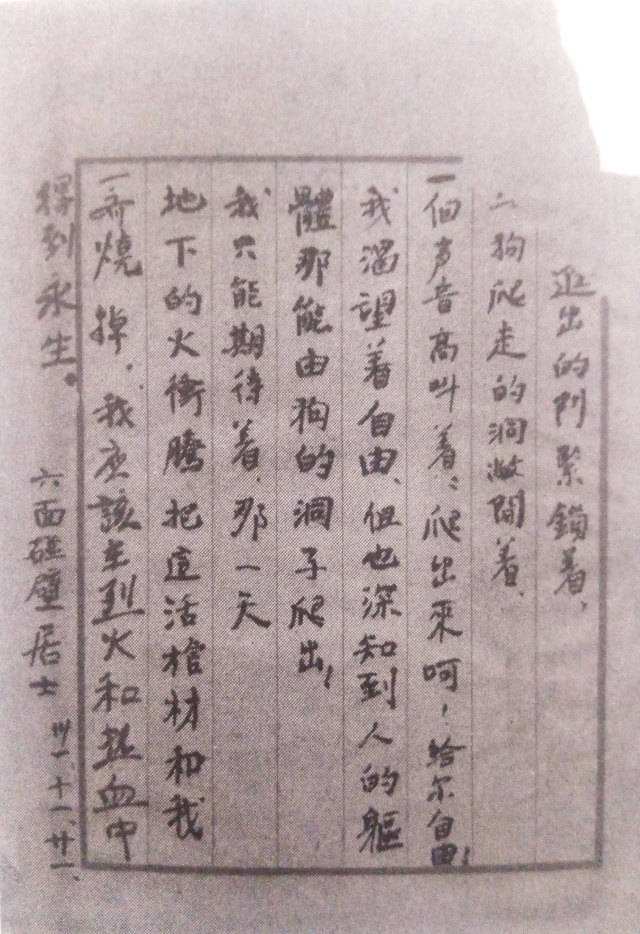 進出的門緊鎖着、
狗爬走的洞敞開着、
一個声音高叫着：爬出來呵！給尔自由！
我渴望着自由、但也深知到人的軀
體那能由狗的洞子爬出！
我只能期待着、那一天
地下的火衝騰把這活棺材和我
一齊燒掉，我应該在烈火和熱血中
得到永生。
六面碰壁居士 卅一、十一、廿一、